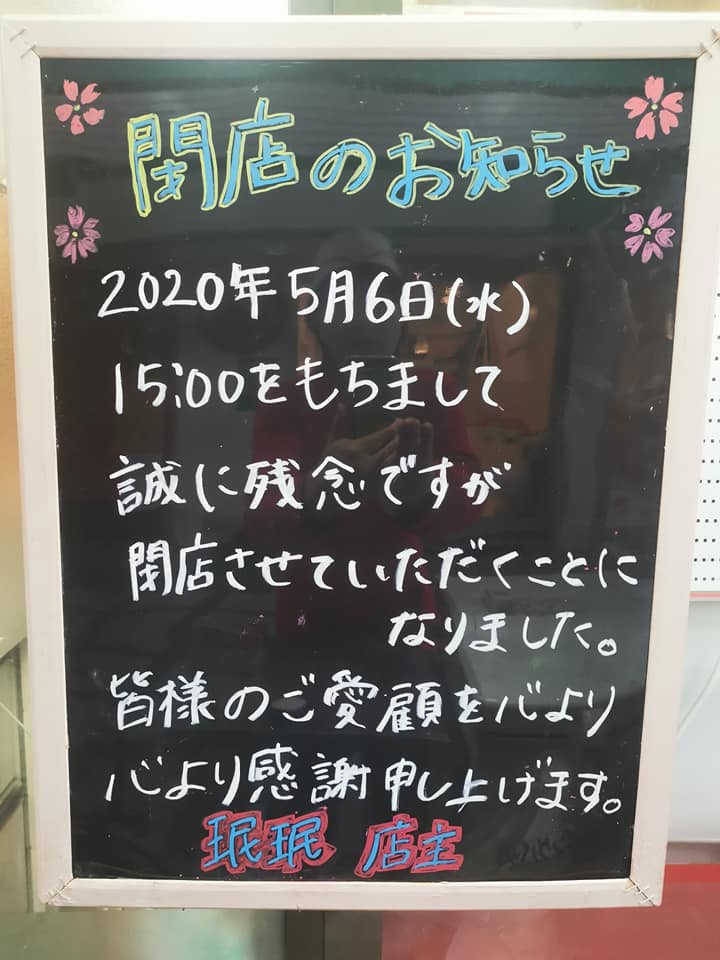 閉店のお知らせ
2020年5月6日(水)
15:00をもちまして
誠に残念ですが
閉店させていただくことに
なりました。
皆様のご愛顧を心より
心より感謝申し上げます。
珉珉 店主